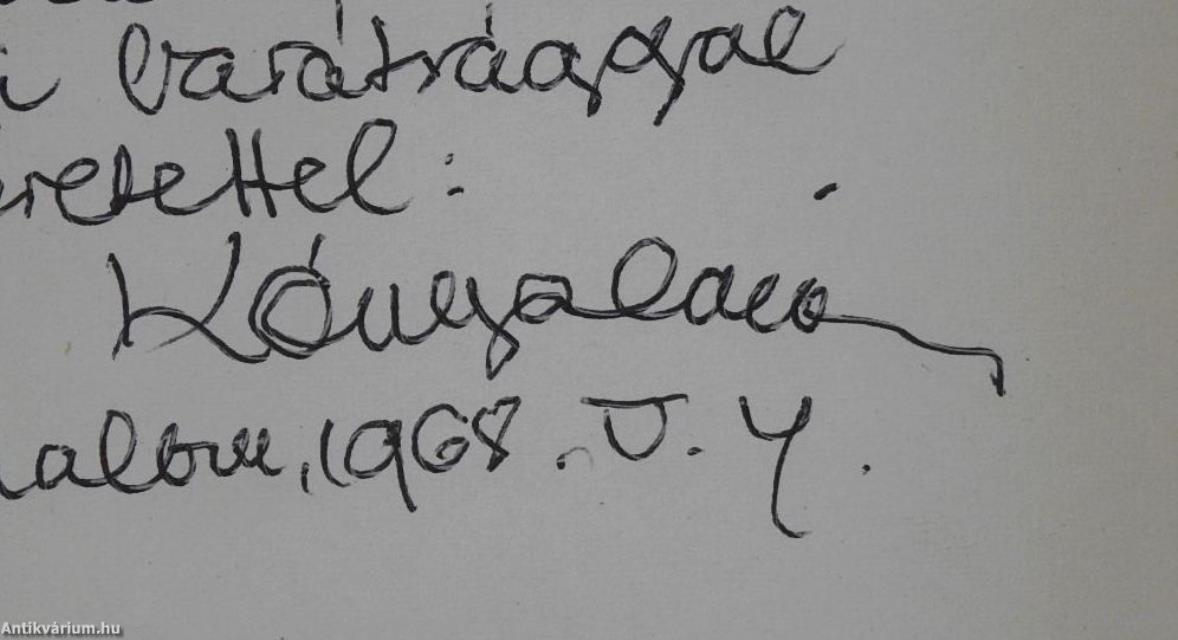 i barátsággal
eretettel:
Kónya Lajos
halom, 1968. V. 4.
Antikvárium.hu